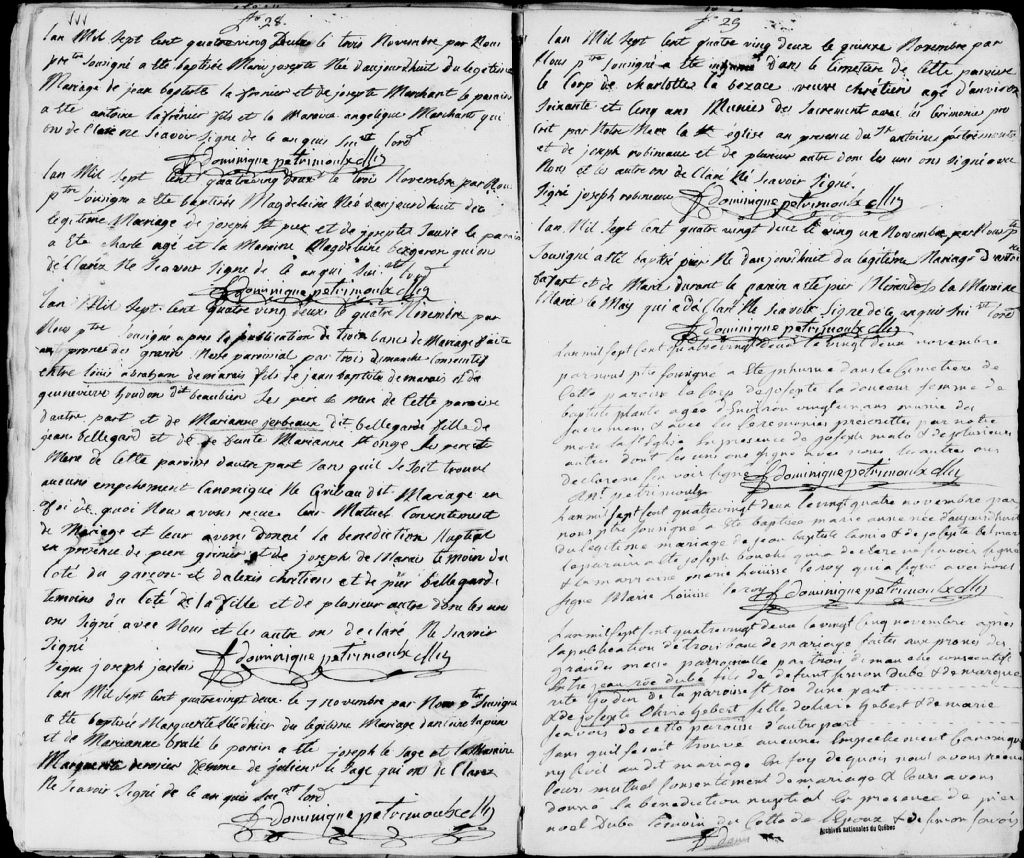 111
fo 28.
Lan Mil Sept Cent quatreving Deux le trois Novembre par Nous
ptre Sousigné a ete baptisée Marie josepte Née daujourdhuit du legetime
Mariage de jean baptiste la frenier et de josepte Marchant le parain
a ete antoine lafrenier fils et la Maraine angelique Marchant qui
on de Claré ne Scavoir Signe de le anquis Suist lord
dominique petrimoulx Miss
Lan Mil Sept Cent quatreving deux le trois Novembre par Nous
ptre Sousigne a ete baptisée Magdeleine Née daujourdhuit du
legitime Mariage de joseph et de josepte le parain
a Ete Charle agé et la Maraine Magdeleine bergeron qui on
de Claréz Ne Scavoir Signe de le anqui Suist lord
dominique petrimoulx Miss
Lan Mil Sept Cent quatre ving deux le quatre Novembre par
Nous ptre Sousigné apres la publication de trois bancs de Mariage faite
aux prones des grande Messe paroisial par trois dimanche Consecutif
entre louis abraham demarais fils de jean baptiste demarais et de
genevieve houdon dit beaubien Ses pere et mere de Cette paroisse
dautre part et de Marianne jerbeaux dit bellegarde fille de
jean bellegard et de Marianne St onge Ses pere et
Mere de Cette paroisse dautre part Sans quil Se Soit trouvé
aucune empechement Canonique Ne Civil au dit Mariage en
foi de quoi Nous avons recue leur Mutuel Consentement
de Mariage et leur avons donné la benediction Nuptial
en presence de piere grenier et de joseph de Marais temoin du
Coté du garcon et dalexis chrétiens et de pier bellegarde
temoins du Coté de la fille et de plusieur autre dont les un
ons Signé avec Nous et les autre ons declaré Ne Scavoir
Signé
Signe joseph
dominique petrimoulx Miss
Lan Mil Sept Cent quatreving deux le 7 novembre par Nous ptre Sousigne
a ete baptisée Marguerite Née dhier du legitime Mariage
et de Marianne brulé le parain a ete joseph le Sage et la Maraine
Marguerite femme de juliens le Sage qui ons de Claréz
Ne Scavoir Signé de le anquis Suist lord
dominique petrimoulx Miss
fo 29
Lan Mil Sept Cent quatre ving deux le quinze Novembre par
Nous ptre Sousigné a ete inhumé dans le Cimetiere de Cette paroisse
le Corp de charlotte la bezace veuve chrétien agé danviron
Soixante et Cinq ans Munies des Sacrement avec les Ceremonies pre
Crit par Notre Mere la Ste église en presence du Sr antoine petrimoulx
et de joseph robineaux et de plusieur autre dont les uns ons Signé avec
Nous et les autre ons de Claré Né Scavoir Signé.
Signé joseph robineaux
dominique petrimoulx Miss
Lan Mil Sept Cent quatre vingt deux le ving un Novembre par Nous ptre
Sousigné a ete batisé pier Né daujourdhuit du legitime Mariage
et de Marie durant le parain a ete pier la Maraine
Marie le May qui a dé Claré Ne Scavoir Signe de le anquis Suist lord
dominique petrimoulx Miss
Lan mil sept Cent quatre vingt deux le vingt deux novembre
par nous ptre sousigné a Ete ynhumé dans le Cemetiere de
Cette paroisse le Corps de josepte ladouceur femme de
baptiste plante agéé denviron vingt cinq ans munie des
sacrement & avec les Ceremonies prescrittes par notre
mere la Ste Eglise En presence de joseph malo & de plusieurs
autres dont les un ons signé avec nous les autre ons
declaré ne scavoir signe
dominique petrimoulx Miss
Ant petrimoulx
Lan mil sept Cent quatre vingt deux le vingt quatre novembre par
nous ptre sousigné a Ete baptiseé marie anne née d'aujourdhuit
du legitime mariage de jean baptiste & de josepte
le parain a ete joseph qui a declaré ne scavoir signe
& la marraine marie Louisse le roy qui a signé avec nous
signe Marie Loüisse leroy
dominique petrimoulx Miss
Lan mil sept Cent quatrevingt deux le vingt Cinq novembre après
la publication de trois banc de mariage faites aux prones des
grandes messe parroissialle par trois dimanche consecutifs
Entre jean dubé fils de defunt simon Dubé & de margue
rite Godin de la paroisse St dune part
& de josepte Olivie hebert fille dolivie hebert & de marie
de cette paroisse d'autre part
sans quil se soit trouvé aucunes Empechement Canonique
ny Civil audit mariage En foy de quois nous avons receue
leurs mutuel Consentement de mariage & leurs avons
donné la benediction nuptial En presence de pier
noel Dubé temoin du Cotté de l'Epoux & de simon
Archives nationales du Québec